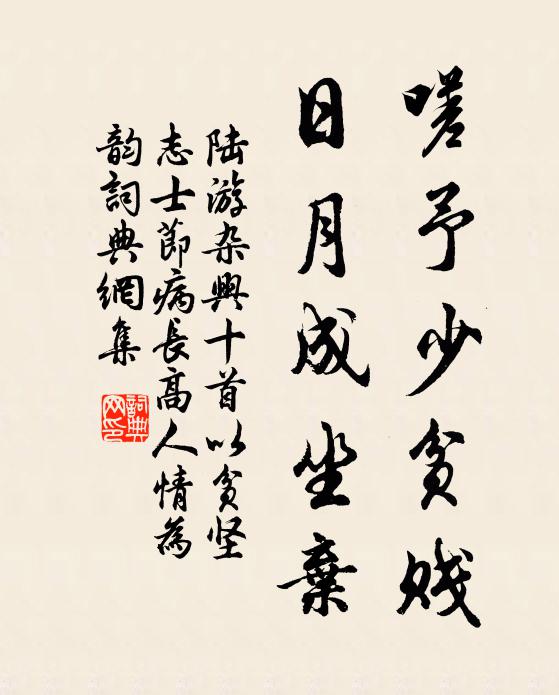 嗟予少贫贱
日月成坐棄
陆游杂興十首以贫坚
志士節病長高人情為
韵詞典網集
詞典网印